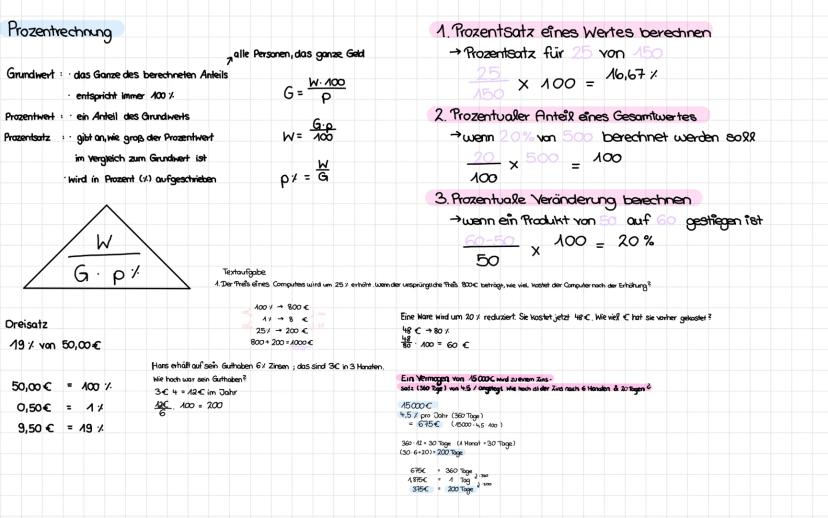 Prozentrechnung
alle Personen, das ganze Geld
Grundwert : · das Ganze des berechneten Anteils
· entspricht immer 100 %
G = W · 100 / P
Prozentwert : · ein Anteil des Grundwerts
Prozentsatz : · gibt an, wie groß der Prozentwert
im Vergleich zum Grundwert ist
· wird in Prozent (%) aufgeschrieben
W = G · p / 100
p % = W / G
W
G · p %
Dreisatz
19 % von 50,00 €
50,00 € = 100 %
0,50 € = 1 %
9,50 € = 19 %
1. Prozentsatz eines Wertes berechnen
→ Prozentsatz für 25 von 150
25 / 150 × 100 = 16,67 %
2. Prozentualer Anteil eines Gesamtwertes
→ wenn 20 % von 500 berechnet werden soll
20 / 100 × 500 = 100
3. Prozentuale Veränderung berechnen
→ wenn ein Produkt von 50 auf 60 gestiegen ist
60-50 / 50 × 100 = 20 %
Textaufgabe
1. Der Preis eines Computers wird um 25 % erhöht. wenn der ursprüngliche Preis 800€ beträgt, wie viel kostet der Computer nach der Erhöhung?
100 % → 800 €
1 % → 8 €
25 % → 200 €
800 + 200 = 1000 €
Hans erhält auf sein Guthaben 6 % Zinsen ; das sind 3€ in 3 Monaten.
Wie hoch war sein Guthaben?
3 € · 4 = 12 € im Jahr
12€ / 6 · 100 = 200
Eine Ware wird um 20 % reduziert. Sie kostet jetzt 48 €. Wie viel € hat sie vorher gekostet?
48 € → 80 %
48 / 80 · 100 = 60 €
Ein Vermögen von 15000€ wird zu einem Zins-
satz (360 Tage) von 4,5 % angelegt. Wie hoch ist der Zins nach 6 Monaten & 20 Tagen?
15000€
4,5 % pro Jahr (360 Tage)
= 675€ (15000 · 4,5 : 100)
360 : 12 = 30 Tage (1 Monat = 30 Tage)
(30 · 6 + 20) = 200 Tage
675€ = 360 Tage
1,875€ = 1 Tag
375€ = 200 Tage